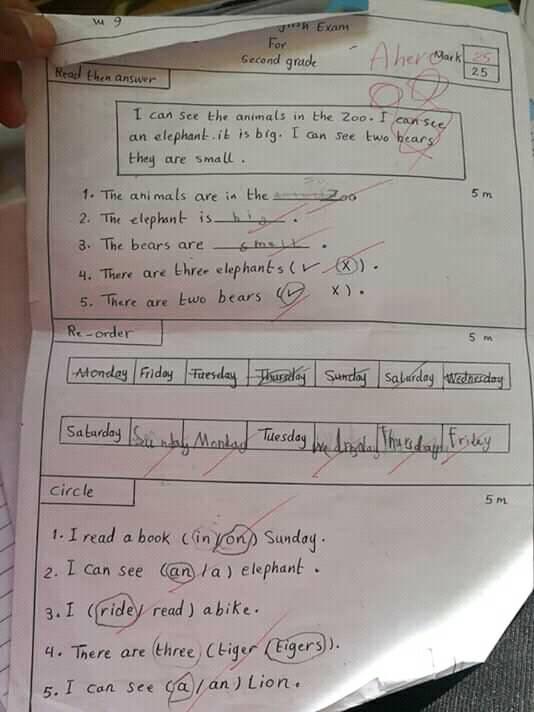 m 9
Exam
For
Second grade
Ahere
Mark 25
25
Read then answer
I can see the animals in the Zoo. I can see
an elephant. it is big. I can see two bears
they are small.
1. The animals are in the Zoo
5 m
2. The elephant is big.
3. The bears are small.
4. There are three elephants (✓ X).
5. There are two bears (✓ X).
Re-order
5 m
Monday Friday Tuesday Thursday Sunday Saturday Wednesday
Saturday Sunday Monday Tuesday Thursday Friday
Circle
5 m
1. I read a book (in/on) Sunday.
2. I can see (an/a) elephant.
3. I (ride/read) a bike.
4. There are three (tiger (tigers)).
5. I can see (a/an) Lion.